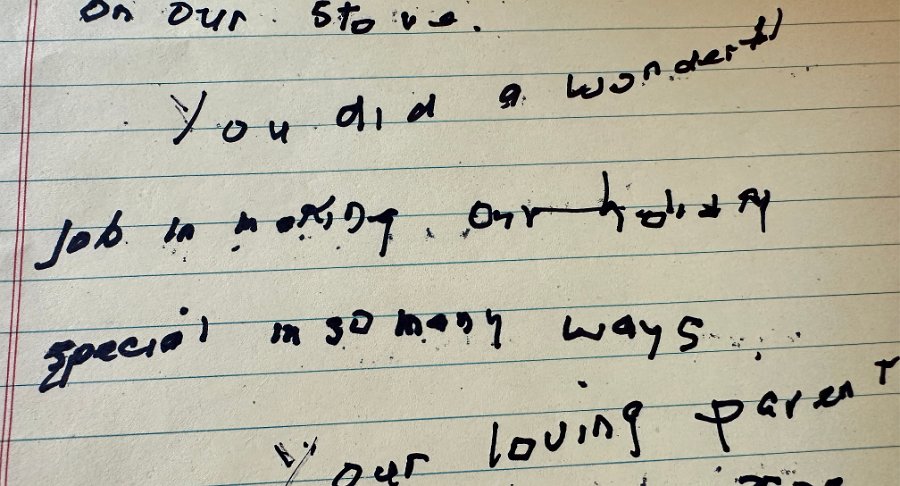 on our stove.
You did a wonderful
job in making our holiday
special in so many ways
Your loving parent